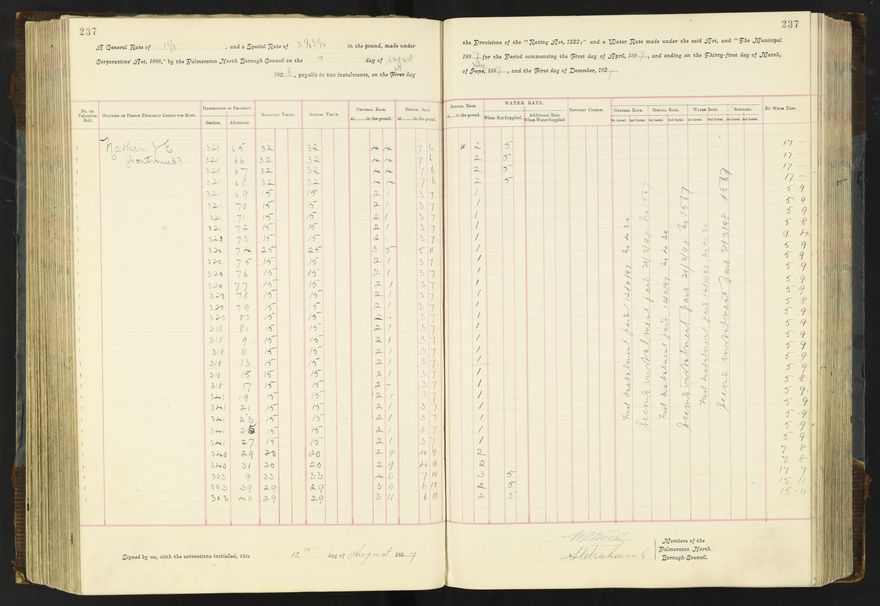 237
A General Rate of 1⅛, and a Special Rate of in the pound, made under
Corporations Act, 1886," by the Palmerston North Borough Council on the 12 day of August
1898, payable in two instalments, on the First day
No. on Valuation Roll.
Occupier or Person Primarily Liable for Rate.
Description of Property.
Section.
Allotment.
Rateable Value.
Annual Value.
General Rate
at in the pound.
Special Rate
at in the pound.
Nathan J E
(continued)
321 65 32 32 7 6
321 66 32 32 7 6
321 67 32 32 7 6
321 68 32 32 7 6
321 69 15 15 2 1 3 7
321 70 15 15 2 1 3 7
321 71 15 15 2 1 3 7
321 72 15 15 2 1 3 7
320 73 15 15 2 - 3 7
320 74 25 25 3 5 5 11
320 75 15 15 2 1 3 7
320 76 15 15 2 1 3 7
320 77 15 15 2 1 3 7
320 78 15 15 2 1 3 7
320 79 15 15 2 1 3 7
320 15 15 2 - 3 7
318 81 15 15 2 1 3 7
318 9 15 15 2 1 3 7
318 11 15 15 2 1 3 7
318 13 15 15 2 1 3 7
318 15 15 15 2 1 3 7
318 17 15 15 2 - 3 7
341 19 15 15 2 1 3 7
341 21 15 15 2 1 3 7
341 23 15 15 2 1 3 7
341 25 15 15 2 1 3 7
341 27 15 15 2 1 3 7
340 29 20 20 2 9 4 9
340 31 20 20 2 9 4 9
303 9 33 33 4 6 7 10
303 39 29 29 3 11 6 10
303 40 29 29 3 11 6 10
Signed by us, with the corrections initialled, this 12th day of August 1897
237
the Provisions of the "Rating Act, 1882;" and a Water Rate made under the said Act, and "The Municipal
1897 for the Period commencing the First day of April, 1897, and ending on the Thirty-first day of March,
of June, 1897, and the First day of December, 1897
Special Rate
at in the pound.
WATER RATE.
When Not Supplied.
Additional Rate When Water Supplied
Sanitary Charge.
General Rate.
Special Rate.
Water Rate.
Sanitary.
1st Instal. 2nd Instal. 1st Instal. 2nd Instal. 1st Instal. 2nd Instal. 1st Instal. 2nd Instal.
By Whom Paid.
2 5 17 -
2 5 17 -
2 5 17 -
2 5 17 -
1 5 9
1 5 9
1 5 9
1 5 8
1 9 4
1 5 9
1 5 9
1 5 9
1 5 9
1 5 9
1 5 8
1 5 9
1 5 9
1 5 9
1 5 9
1 5 9
1 5 8
1 5 9
1 5 9
1 5 9
1 5 9
1 5 9
2 7 8
2 7 8
2 5 17 7
2 5 15 11
2 5 15 11
First Instalment paid
Second instalment paid 31/3/98 No 1567
First Instalment paid
Second instalment paid 31/3/98 No 1567
First Instalment paid
Second instalment paid 31/3/98 1567
Members of the
Palmerston North
Borough Council.